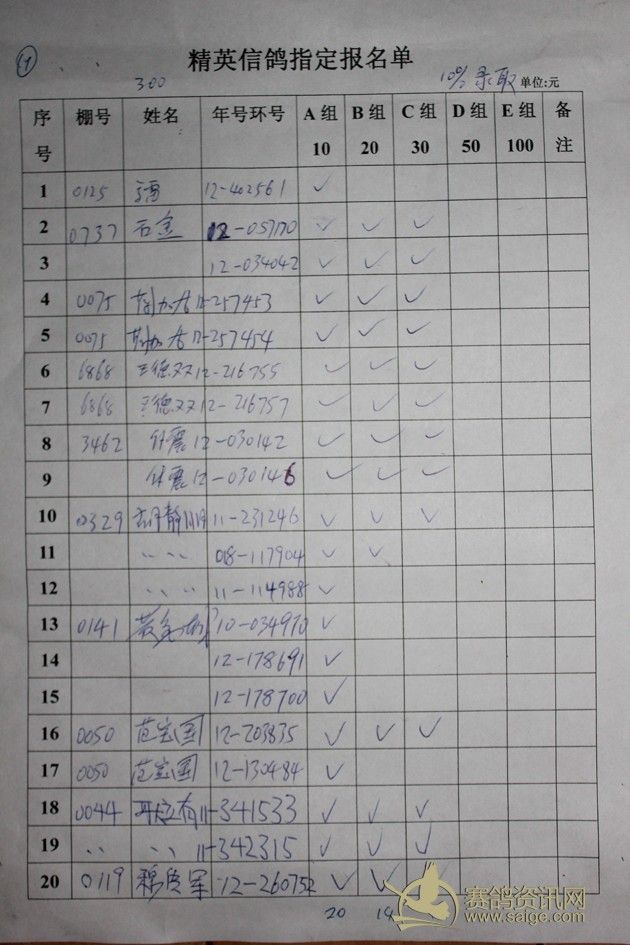 1
精英信鸽指定报名单
300 10% 录取 单位:元
序号 棚号 姓名 年号环号 A组 10 B组 20 C组 30 D组 50 E组 100 备注
1 0125 12-402561 ✓
2 0737 石金 12-057170 ✓ ✓ ✓
3 12-034042 ✓ ✓ ✓
4 0075 11-257453 ✓ ✓ ✓
5 0075 11-257454 ✓ ✓ ✓
6 6868 王德双 12-216755 ✓ ✓ ✓
7 6868 王德双 12-216757 ✓ ✓ ✓
8 3462 钟震 12-030142 ✓ ✓ ✓
9 钟震 12-030146 ✓ ✓ ✓
10 0329 11-231246 ✓ ✓ ✓
11 〃 〃 08-117904 ✓ ✓
12 〃 〃 11-114988 ✓
13 0141 10-034970 ✓
14 12-178691 ✓
15 12-178700 ✓
16 0050 范宝国 12-203835 ✓ ✓ ✓
17 0050 范宝国 12-130484 ✓
18 0044 11-341533 ✓ ✓ ✓
19 〃 〃 11-342315 ✓ ✓ ✓
20 0119 12-260752 ✓ ✓
20
赛鸽资讯网
www.saige.com